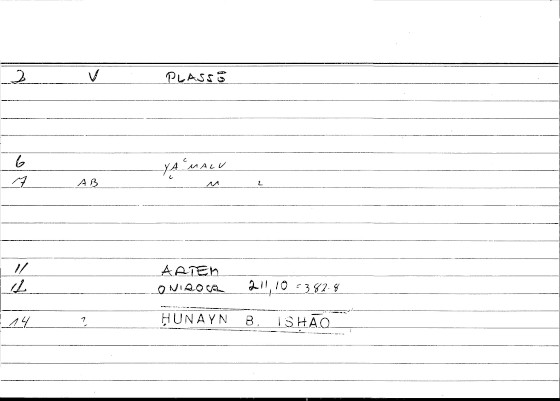 2 V PLASSŌ
6 YAʿMALU
7 AB M L
11 ARTEM
12 ONIROCR 211,10 = 382.8
14 ? ḤUNAYN B. ISHĀO